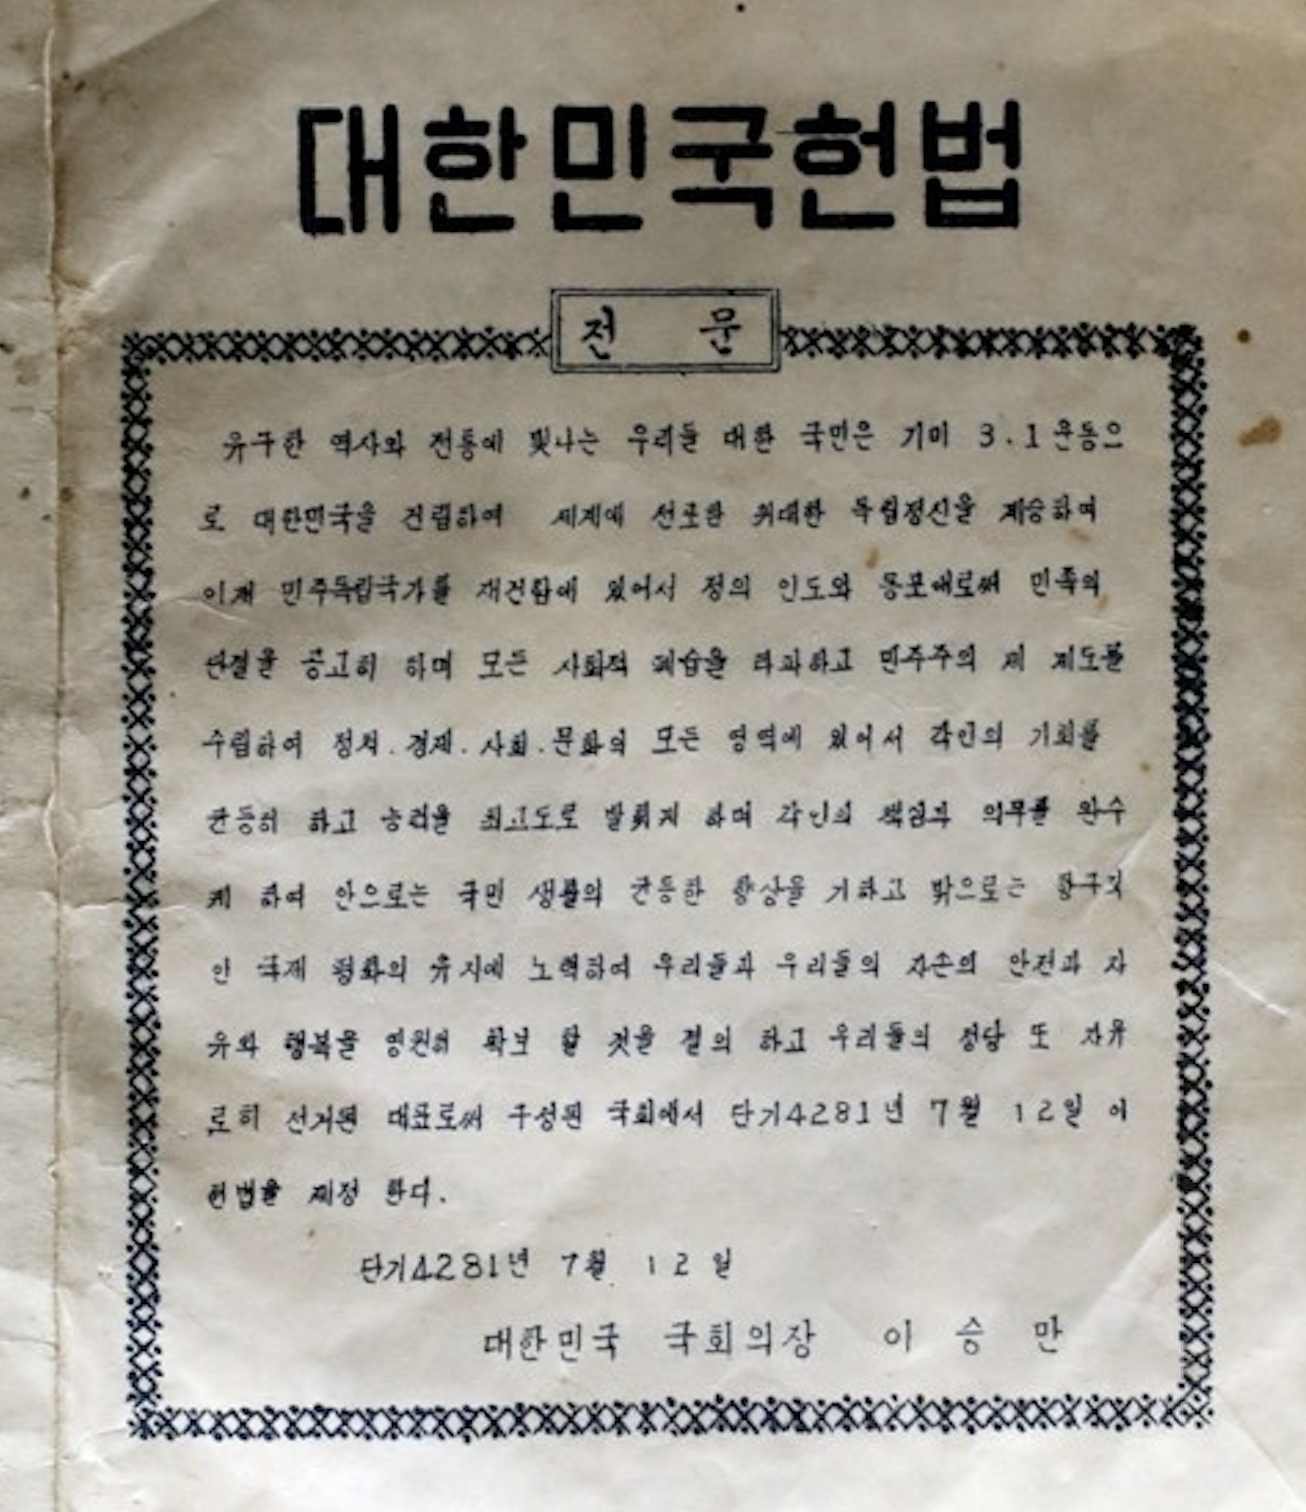 대한민국헌법
전 문
유구한 역사와 전통에 빛나는 우리들 대한 국민은 기미 3.1운동으
로 대한민국을 건립하여 세계에 선포한 위대한 독립정신을 계승하여
이제 민주독립국가를 재건함에 있어서 정의 인도와 동포애로써 민족의
단결을 공고히 하며 모든 사회적 폐습을 타파하고 민주주의 제 제도를
수립하여 정치.경제.사회.문화의 모든 영역에 있어서 각인의 기회를
균등히 하고 능력을 최고도로 발휘게 하며 각인의 책임과 의무를 완수
케 하여 안으로는 국민 생활의 균등한 향상을 기하고 밖으로는 항구적
인 국제 평화의 유지에 노력하여 우리들과 우리들의 자손의 안전과 자
유와 행복을 영원히 확보 할 것을 결의 하고 우리들의 정당 또 자유
로히 선거된 대표로써 구성된 국회에서 단기4281년 7월 12일 이
헌법을 제정 한다.
단기4281년 7월 12일
대한민국 국회의장 이 승 만